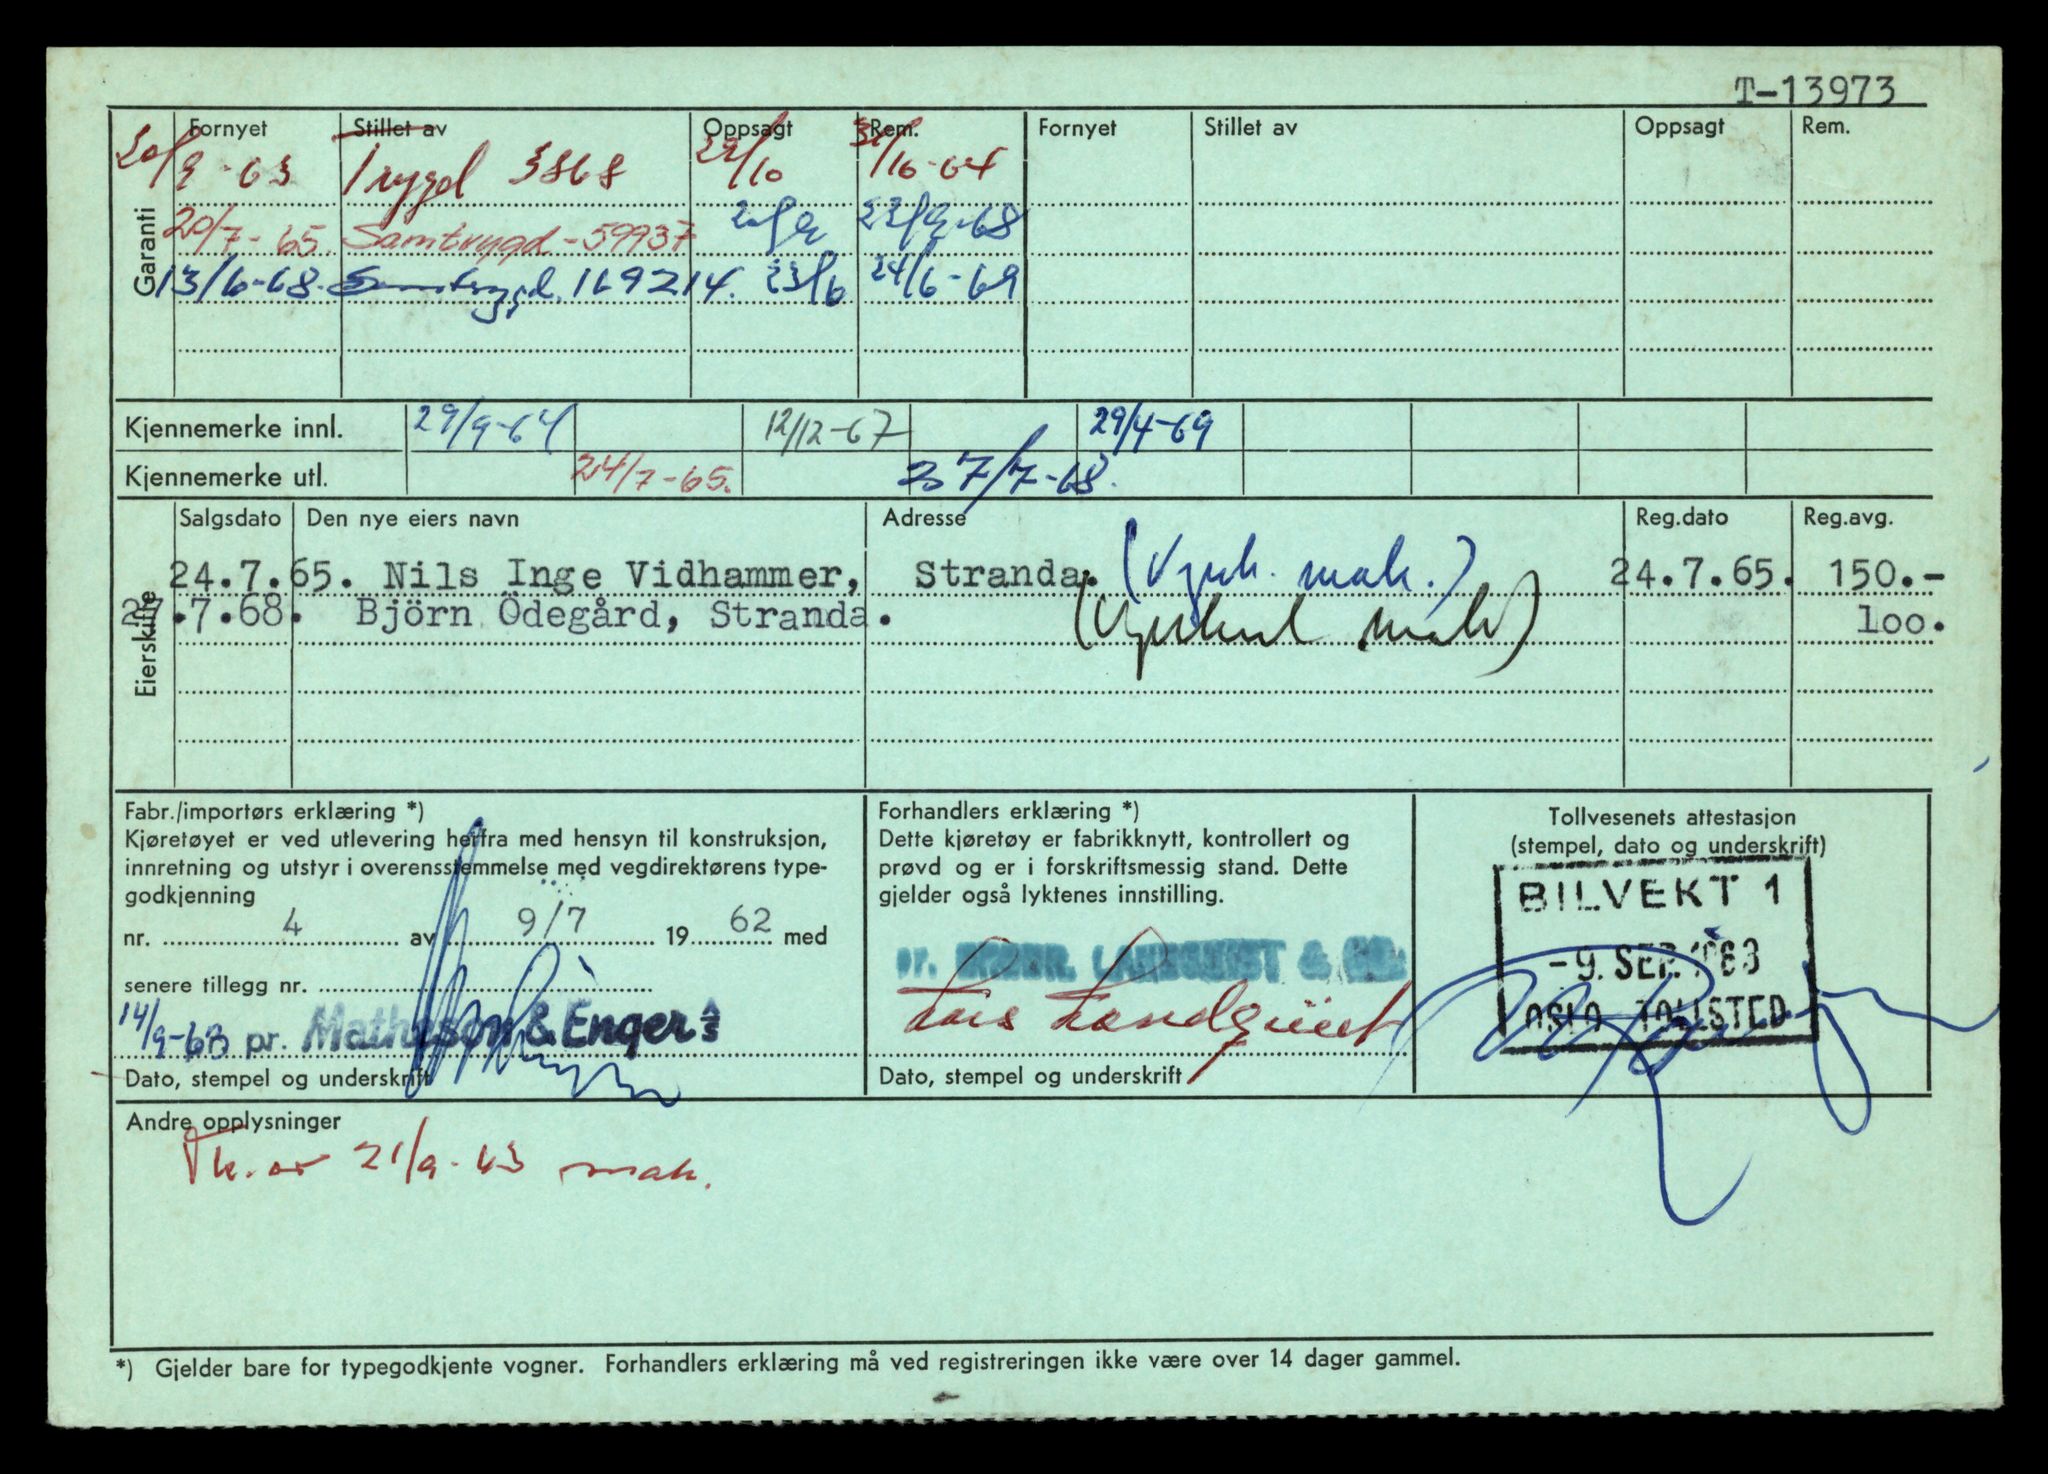 T-13973
Fornyet Stillet av Oppsagt Rem. Fornyet Stillet av Oppsagt Rem.
Garanti
20/9-63 Trygd 3868 /10 /10-64
20/7-65. Samtrygd-59937 20/9 23/9-68
13/6-68. Samtrygd. 169214. 23/6 24/6-69
Kjennemerke innl. 29/9-64 12/12-67 29/4-69
Kjennemerke utl. 24/7-65. 27/7-68.
Eierskifte
Salgsdato Den nye eiers navn Adresse Reg.dato Reg.avg.
24.7.65. Nils Inge Vidhammer, Stranda. mak.) 24.7.65. 150.-
27.7.68. Björn Ödegård, Stranda. 100.
Fabr./importørs erklæring *)
Kjøretøyet er ved utlevering herfra med hensyn til konstruksjon,
innretning og utstyr i overensstemmelse med vegdirektørens type-
godkjenning
nr. 4 av 9/7 1962 med
senere tillegg nr.
14/9-63 pr. Mathison & Enger A/S
Dato, stempel og underskrift
Forhandlers erklæring *)
Dette kjøretøy er fabrikknytt, kontrollert og
prøvd og er i forskriftsmessig stand. Dette
gjelder også lyktenes innstilling.
pr. LANDQUIST & CO.
Lars Landquist
Dato, stempel og underskrift
Tollvesenets attestasjon
(stempel, dato og underskrift)
BILVEKT 1
-9. SEP. 1963
OSLO TOLLSTED
Andre opplysninger
21/9-63 mak.
*) Gjelder bare for typegodkjente vogner. Forhandlers erklæring må ved registreringen ikke være over 14 dager gammel.